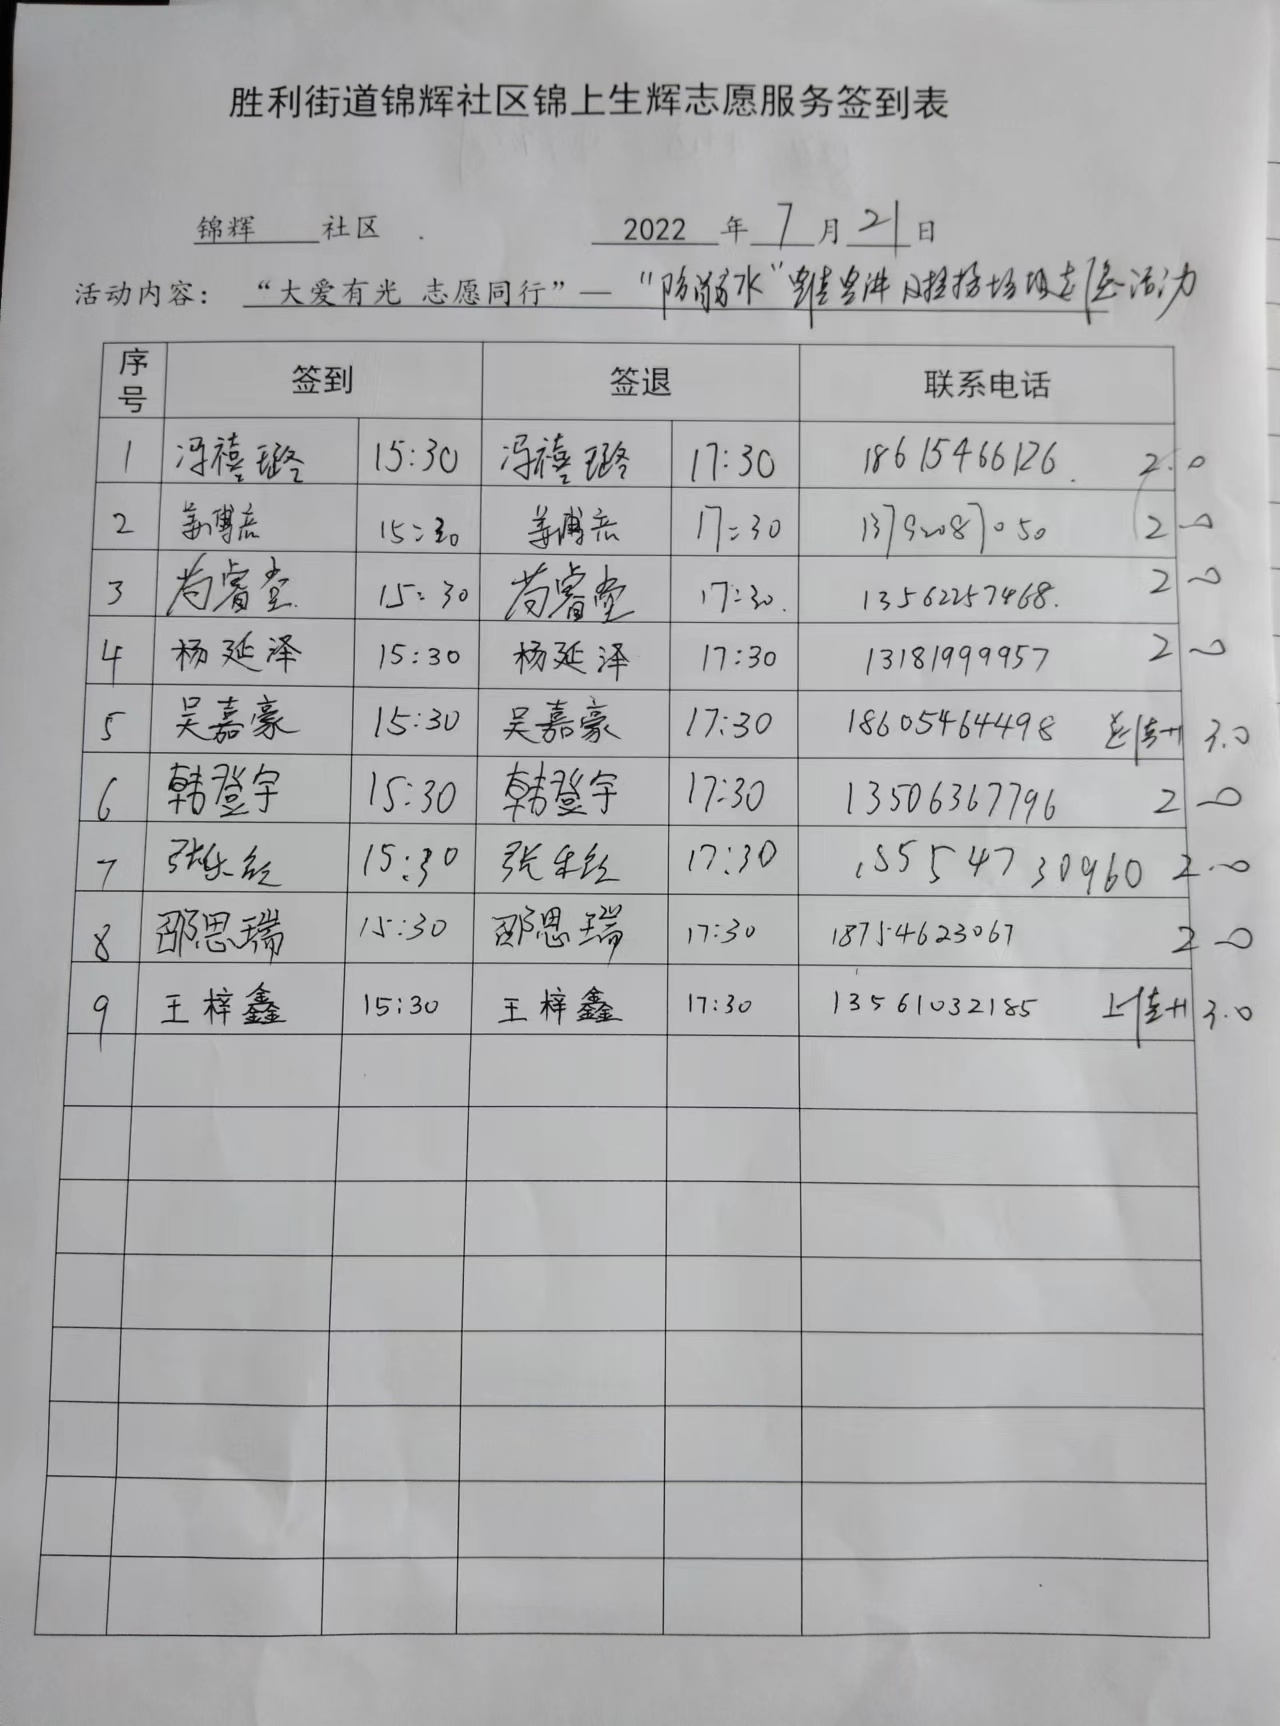 胜利街道锦辉社区锦上生辉志愿服务签到表
锦辉 社区 2022 年 7 月 21 日
活动内容： “大爱有光 志愿同行”— “防溺水”
序号 签到 签退 联系电话
1 冯禧璐 15:30 冯禧璐 17:30 18615466126 2.0
2 姜博 15:30 姜博 17:30 13792087050 2.0
3 尚睿堂 15:30 尚睿堂 17:30 13562257468 2.0
4 杨延泽 15:30 杨延泽 17:30 13181999957 2.0
5 吴嘉豪 15:30 吴嘉豪 17:30 18605464498 3.0
6 韩登宇 15:30 韩登宇 17:30 13506367796 2.0
7 张乐 15:30 张乐 17:30 15554730960 2.0
8 邵思瑞 15:30 邵思瑞 17:30 18754623067 2.0
9 王梓鑫 15:30 王梓鑫 17:30 13561032185 3.0